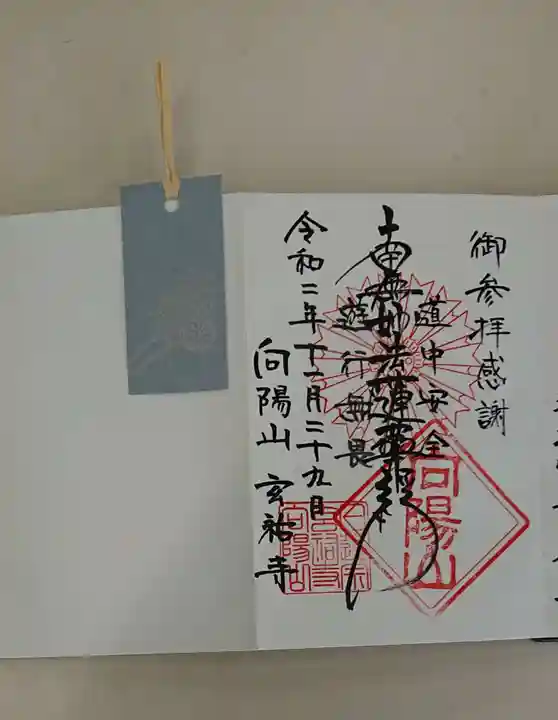 御参拝感謝
道中安全
南無妙法蓮華経
遊行無畏
令和二年十一月二十九日
向陽山 玄祐寺
向陽山